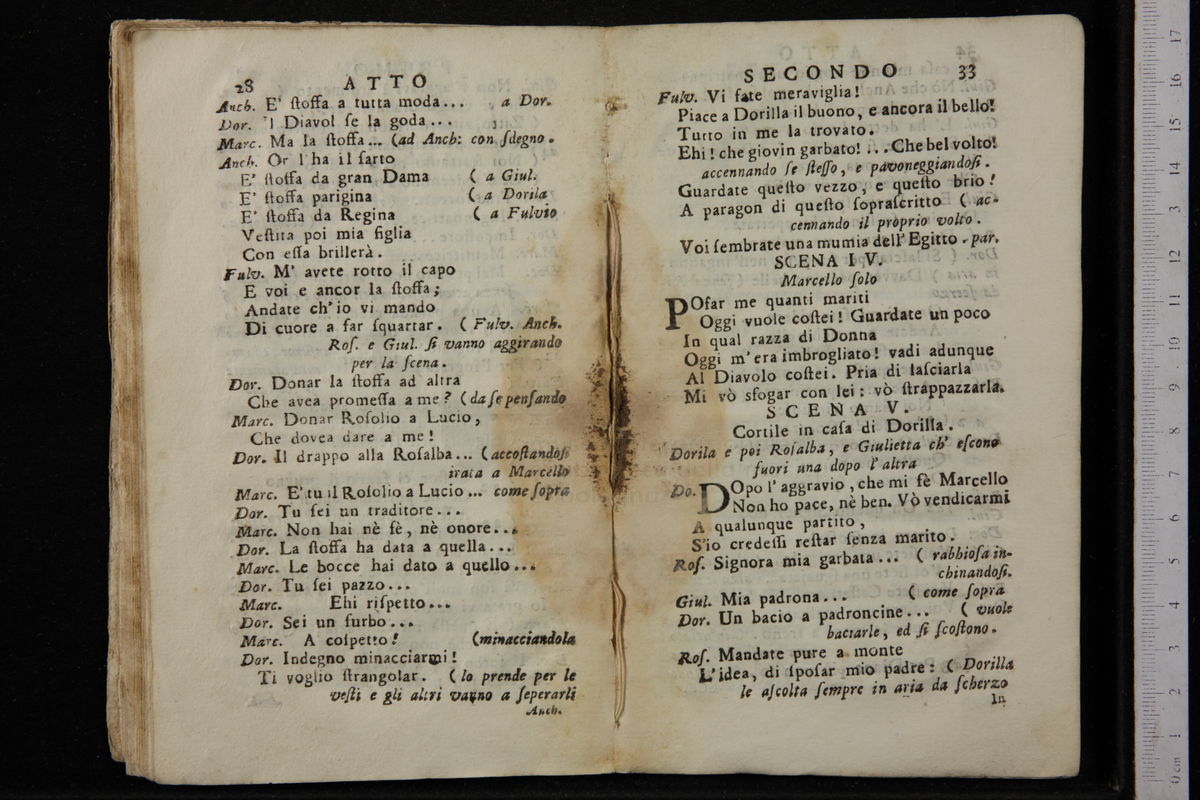 28 ATTO
Anch. E' ſtoffa a tutta moda... a Dor.
Dor. 'l Diavol ſe la goda...
Marc. Ma la ſtoffa... (ad Anch: con ſdegno.
Anch. Or l'ha il ſarto
E' ſtoffa da gran Dama ( a Giul.
E' ſtoffa parigina ( a Dorila
E' ſtoffa da Regina ( a Fulvio
Veſtita poi mia figlia
Con eſſa brillerà.
Fulv. M' avete rotto il capo
E voi e ancor la ſtoffa;
Andate ch'io vi mando
Di cuore a far ſquartar. ( Fulv. Anch.
Roſ. e Giul. ſi vanno aggirando
per la ſcena.
Dor. Donar la ſtoffa ad altra
Che avea promeſſa a me? ( da ſe penſando
Marc. Donar Roſolio a Lucio,
Che dovea dare a me!
Dor. Il drappo alla Roſalba... (accoſtandoſi
irata a Marcello
Marc. E' tu il Roſolio a Lucio... come ſopra
Dor. Tu ſei un traditore...
Marc. Non hai nè fè, nè onore...
Dor. La ſtoffa ha data a quella...
Marc. Le bocce hai dato a quello...
Dor. Tu ſei pazzo...
Marc. Ehi riſpetto...
Dor. Sei un furbo...
Marc. A coſpetto! (minacciandola
Dor. Indegno minacciarmi!
Ti voglio ſtrangolar. (lo prende per le
veſti e gli altri vanno a ſeperarli
Anch.
SECONDO 33
Fulv. Vi fate meraviglia!
Piace a Dorilla il buono, e ancora il bello!
Tutto in me la trovato.
Ehi! che giovin garbato!...Che bel volto!
accennando ſe ſteſſo, e pavoneggiandoſi.
Guardate queſto vezzo, e queſto brio!
A paragon di queſto ſopraſcritto ( ac-
cennando il proprio volto.
Voi ſembrate una mumia dell' Egitto. par.
SCENA IV.
Marcello ſolo
POſar me quanti mariti
Oggi vuole coſtei! Guardate un poco
In qual razza di Donna
Oggi m'era imbrogliato! vadi adunque
Al Diavolo coſtei. Pria di laſciarla
Mi vò sfogar con lei: vò ſtrappazzarla.
SCENA V.
Cortile in caſa di Dorilla.
Dorila e poi Roſalba, e Giulietta ch' eſcono
fuori una dopo l'altra
Do. DOpo l'aggravio, che mi fè Marcello
Non ho pace, nè ben. Vò vendicarmi
A qualunque partito,
S'io credeſſi reſtar ſenza marito.
Roſ. Signora mia garbata... ( rabbioſa in-
chinandoſi.
Giul. Mia padrona... ( come ſopra
Dor. Un bacio a padroncine... ( vuole
baciarle, ed ſi ſcoſtono.
Roſ. Mandate pure a monte
L'idea, di ſpoſar mio padre: ( Dorilla
le aſcolta ſempre in aria da ſcherzo
In
0 cm 1 2 3 4 5 6 7 8 9 10 11 12 13 14 15 16 17